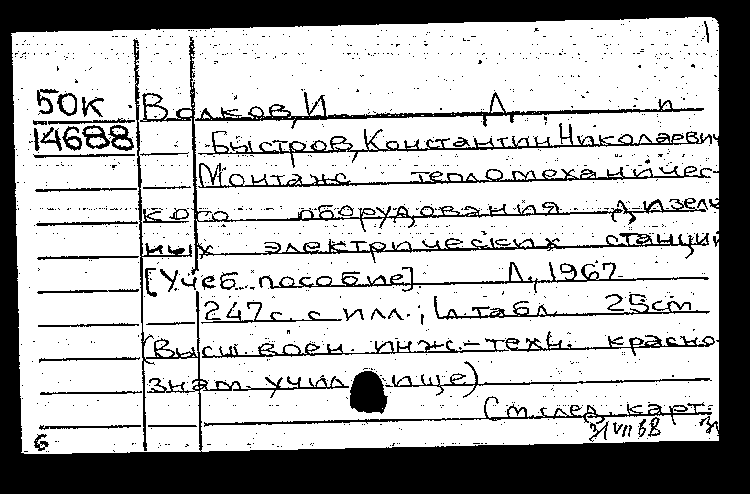 50к Волков, И Л. п
14688 Быстров, Константин Николаевич
Монтаж тепломеханичес-
кого оборудования дизель
ных электрических станций
[Учеб. пособие] Л., 1967
247 с. с илл., 1 л. табл. 25 cm
(Высш. воен. инж.-техн. красно-
знам. училище)
См. след. карт.
6 31 VII 68